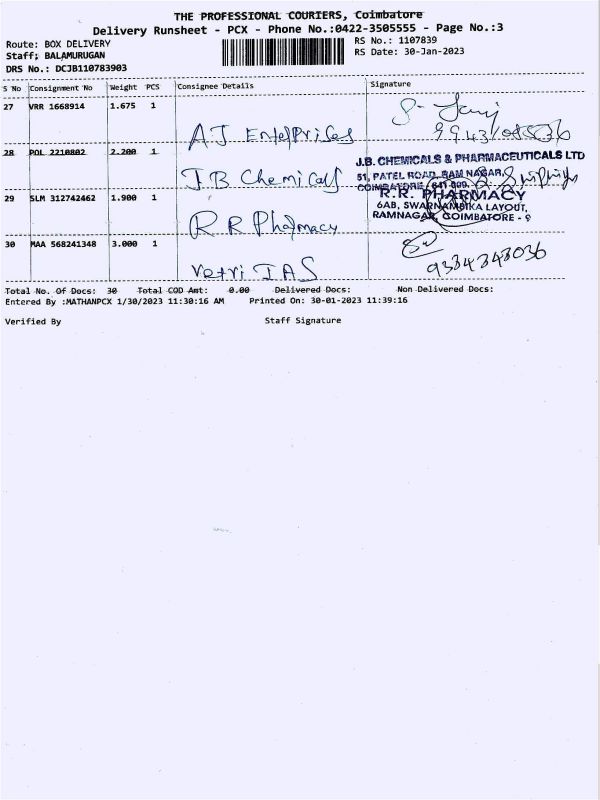 THE PROFESSIONAL COURIERS, Coimbatore
Delivery Runsheet - PCX - Phone No.:0422-3505555 - Page No.:3
Route: BOX DELIVERY
RS No.: 1107839
Staff; BALAMURUGAN
RS Date: 30-Jan-2023
DRS No.: DCJB110783903
S No Consignment No Weight PCS Consignee Details Signature
27 VRR 1668914 1.675 1
AJ Enterprises
28 POL 2210802 2.200 1
J.B. CHEMICALS & PHARMACEUTICALS LTD
J B Chemicals
51, PATEL ROAD, RAM NAGAR,
COIMBATORE - 641 009.
29 SLM 312742462 1.900 1
R.R. PHARMACY
6AB, SWARNAMBIKA LAYOUT,
RAMNAGAR, COIMBATORE - 9
R R Pharmacy
30 MAA 568241348 3.000 1
9384343036
Vetri IAS
Total No. Of Docs: 30 Total COD Amt: 0.00 Delivered Docs: Non Delivered Docs:
Entered By :MATHANPCX 1/30/2023 11:30:16 AM Printed On: 30-01-2023 11:39:16
Verified By Staff Signature